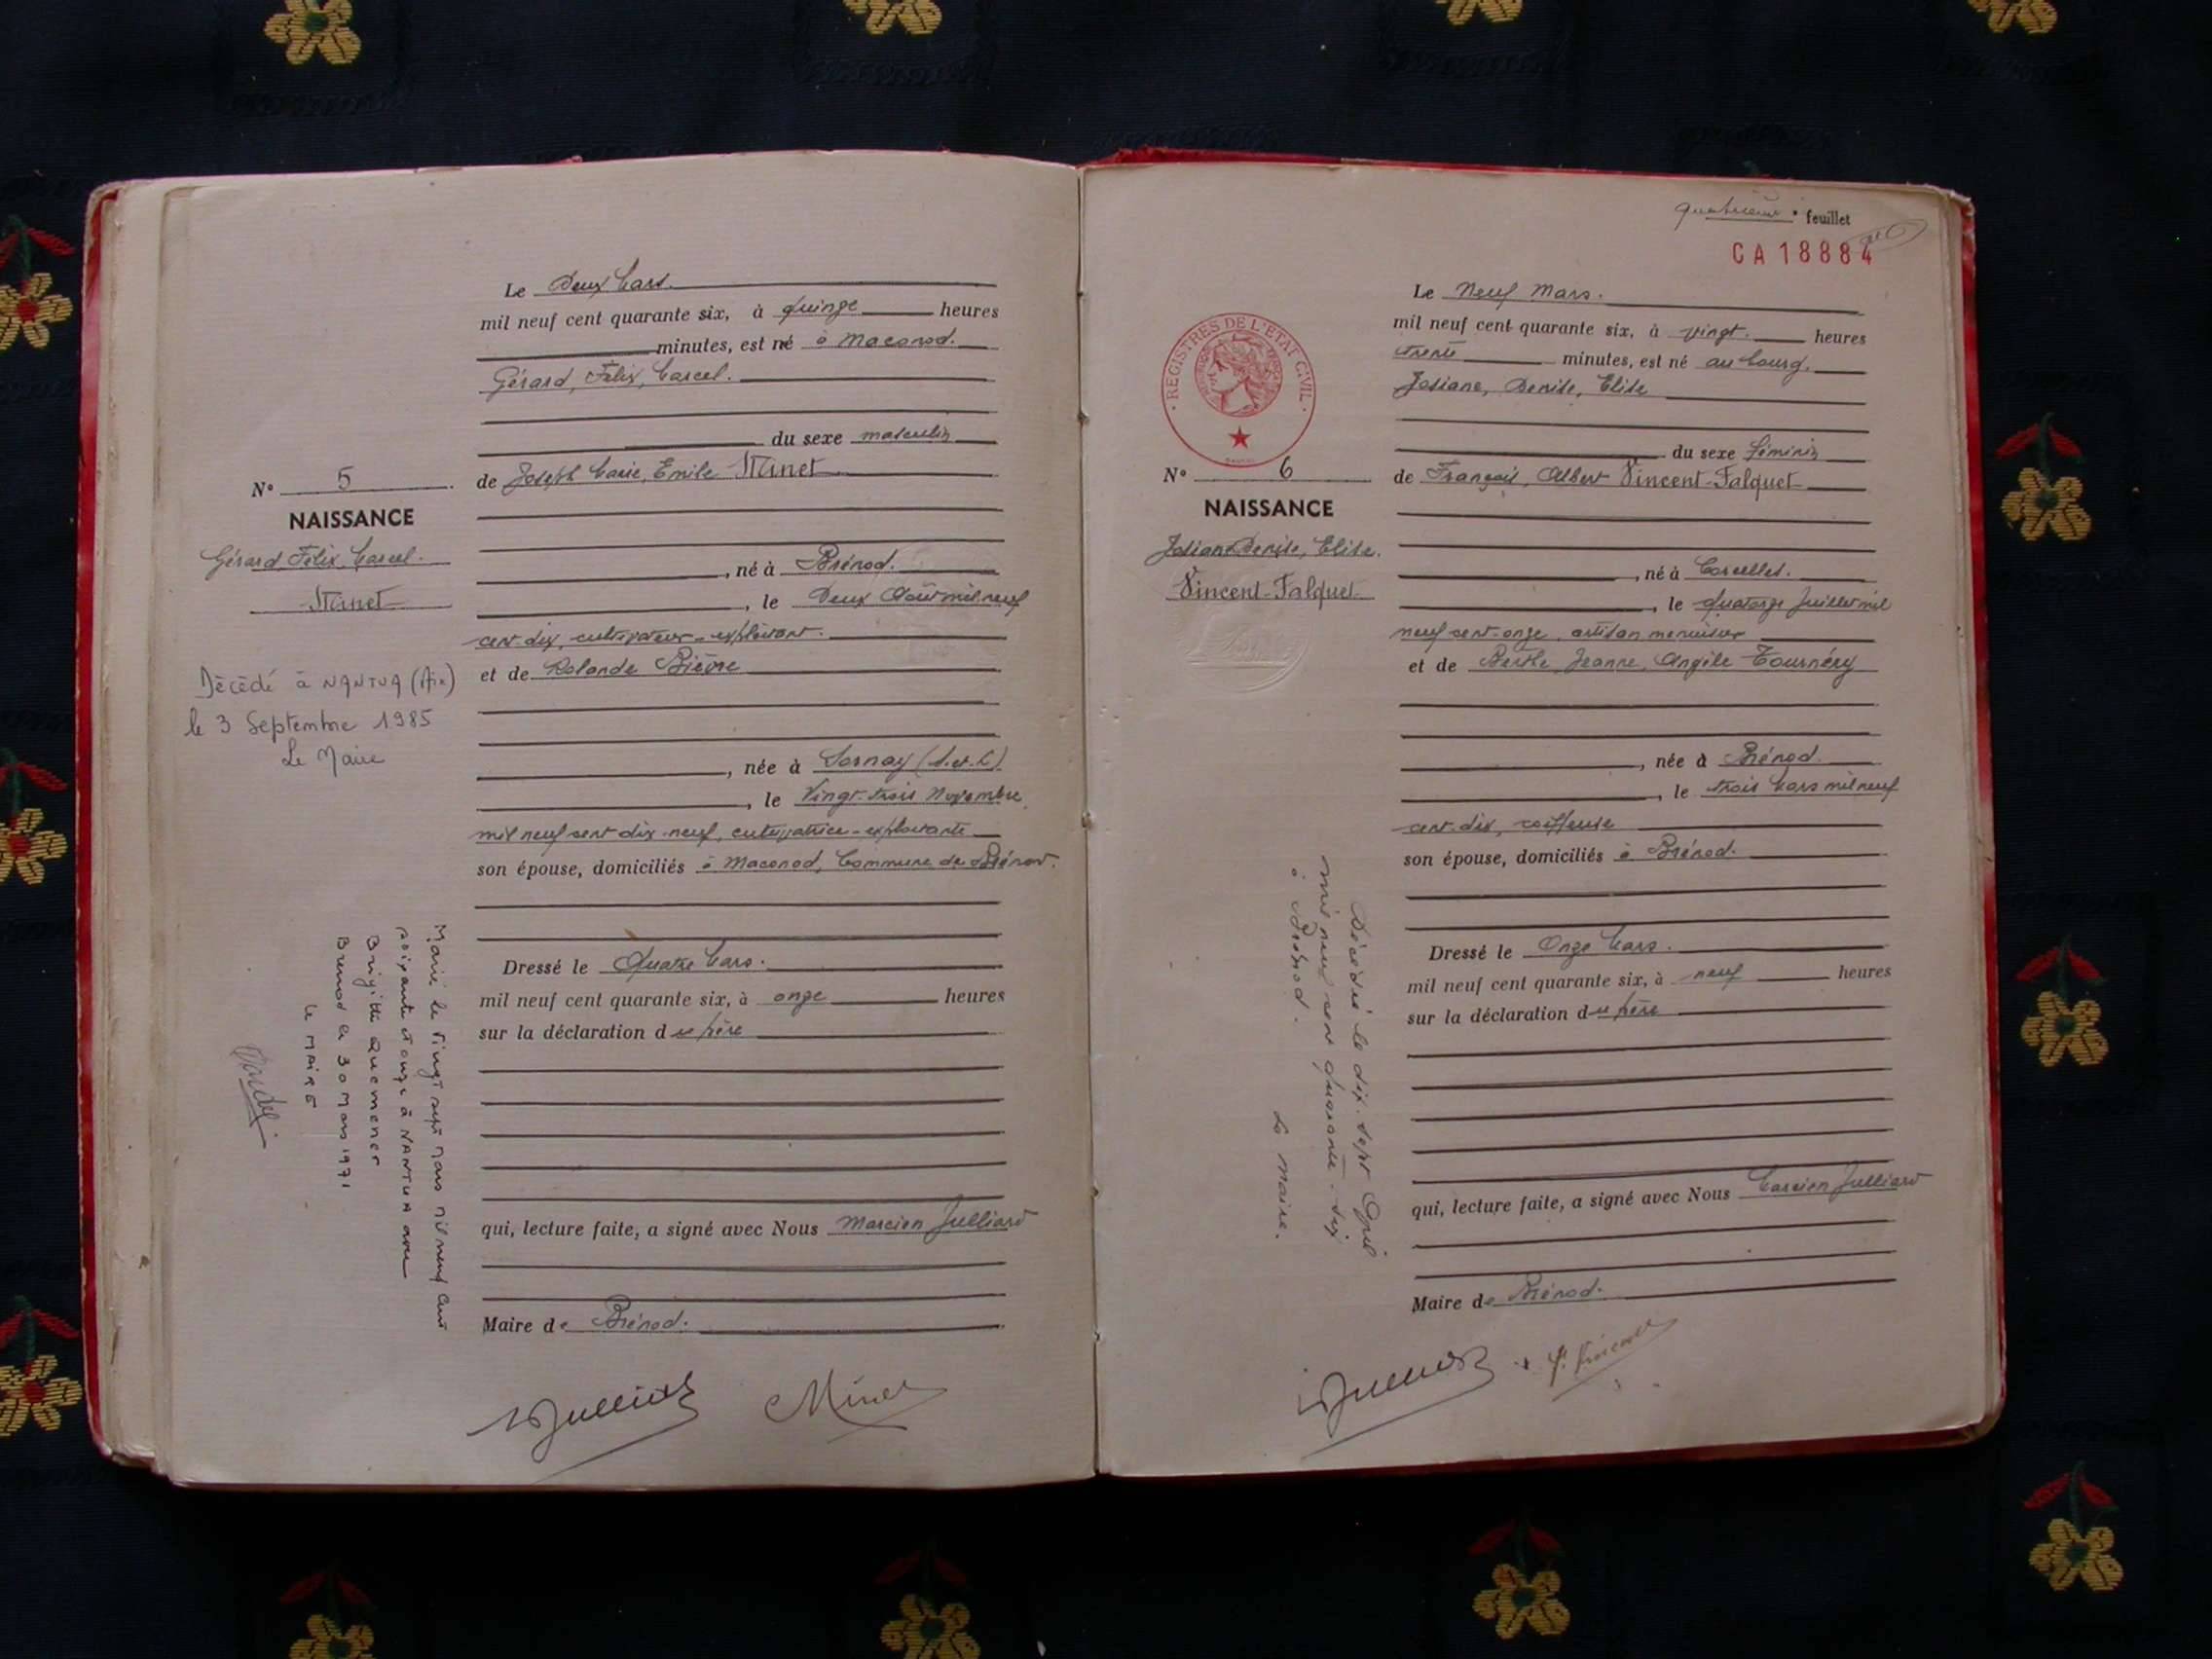 Le Deux Mars.
mil neuf cent quarante six, à quinze heures
minutes, est né à Maconod.
Gérard, Félix, Marcel.
du sexe masculin
N° 5
de Joseph Marie, Emile Minet
NAISSANCE
Gérard, Félix, Marcel.
Minet
, né à Brénod.
, le Deux Août mil neuf
cent dix, cultivateur-exploitant.
et de Rolande Bièvre
Décédé à NANTUA (Ain)
le 3 Septembre 1985
Le Maire
, née à Sornay (S.et.L)
, le Vingt-trois Novembre
mil neuf cent dix-neuf, cultivatrice-exploitante
son épouse, domiciliés à Maconod, Commune de Brénod.
Dressé le Quatre Mars.
mil neuf cent quarante six, à onze heures
sur la déclaration du père
Marié le vingt sept mars mil neuf cent
soixante et onze à NANTUA avec
Brigitte Quemener
Brenod le 30 Mars 1971
Le MAIRE
qui, lecture faite, a signé avec Nous Marcien Julliard
Maire de Brénod.
Julliard Minet
quatrième feuillet
CA 18884
Le Neuf Mars.
mil neuf cent quarante six, à vingt. heures
trente minutes, est né au bourg.
Josiane, Denise, Elise
REGISTRES DE L'ETAT CIVIL
du sexe féminin
N° 6
de François, Albert Vincent-Falquet
NAISSANCE
Josiane Denise, Elise.
Vincent-Falquet
, né à Corcelles.
, le quatorze Juillet mil
neuf cent-onze, artisan menuisier
et de Berthe, Jeanne, Angèle Tournéry
, née à Brénod.
, le trois Mars mil neuf
cent-dix, coiffeuse
son épouse, domiciliés à Brénod.
Dressé le Onze Mars.
mil neuf cent quarante six, à neuf heures
sur la déclaration du père
Décédée le dix-sept Avril
mil neuf cent quarante-six
à Brénod.
Le maire.
qui, lecture faite, a signé avec Nous Marcien Julliard
Maire de Brénod.
Julliard